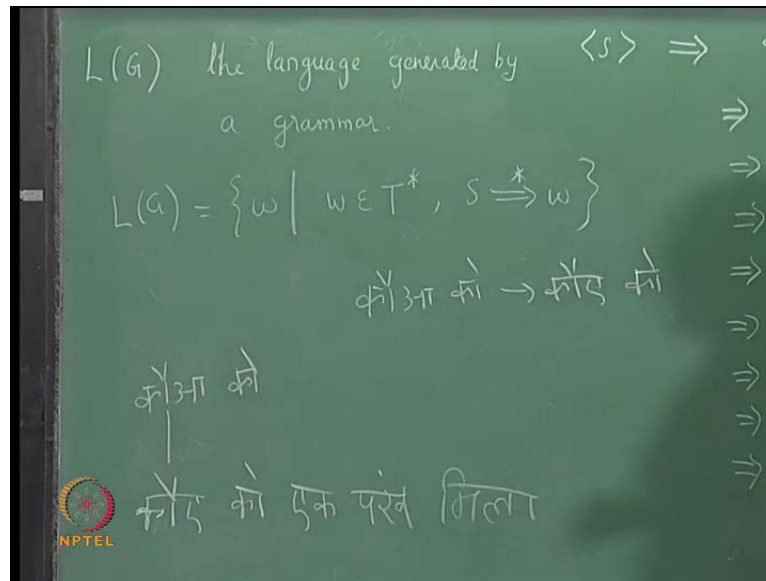 L(G) the language generated by <S> ⇒
a grammar. ⇒
⇒
L(G) = {w | w ∈ T*, S ⇒* w}
⇒
कौआ को → कौए को ⇒
⇒
कौआ को ⇒
⇒
कौए को एक पंख मिला ⇒
NPTEL